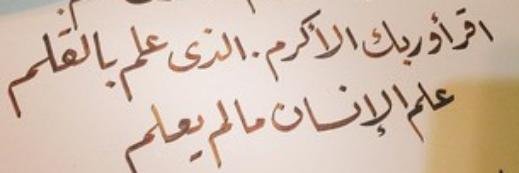 اقرأ وربك الأكرم. الذى علم بالقلم
علم الإنسان مالم يعلم